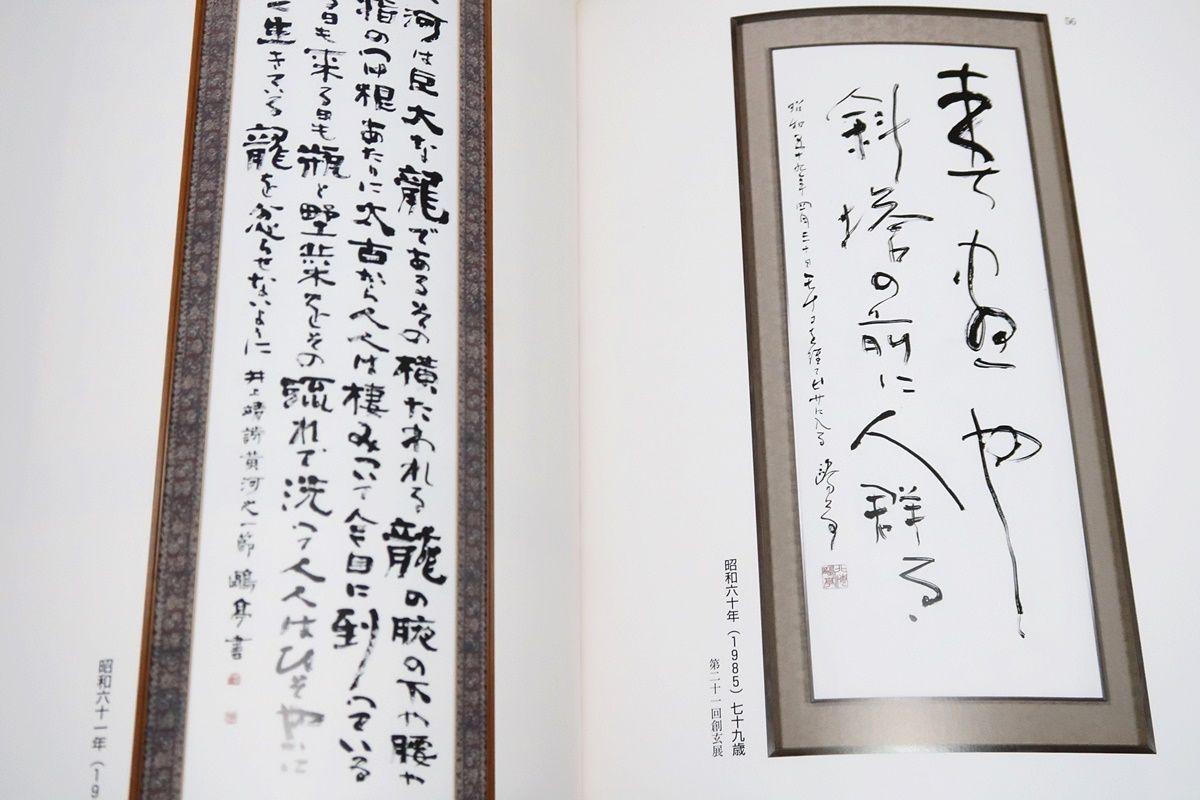 56
来て や
斜塔の前に人群る
昭和五十九年四月三十日モナコを経てピサに入る
昭和六十年(1985)七十九歳
第二十一回創玄展
河は巨大な龍であるその横たわれる龍の腕の下や腰や
指のつけ根あたりに太古から人々は棲みついて今日に到っている
る日も来る日も瓶と野菜をその流れで洗つ人々はひそやかに
生きている龍を怒らせないように 井上靖詩黄河之一節 鷗亭書
昭和六十一年(19